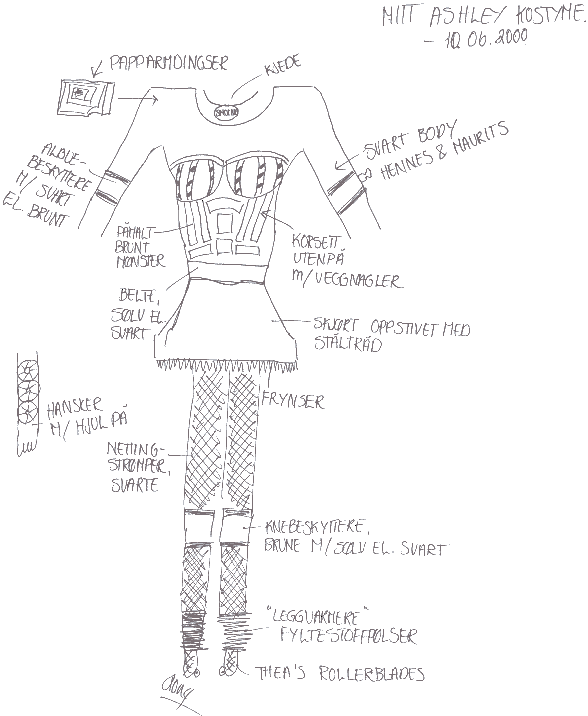 MITT ASHLEY KOSTYME.
- 10.06.2000
PAPPARMDINGSER
KJEDE
SVART BODY
HENNES & MAURITS
ALBUE-
BESKYTTERE
M/ SVART
EL. BRUNT
PÅMALT
BRUNT
MØNSTER
KORSETT
UTENPÅ
m/VEGGNAGLER
BELTE,
SØLV EL.
SVART
SKJØRT OPPSTIVET MED
STÅLTRÅD
HANSKER
M/ HJUL PÅ
FRYNSER
NETTING-
STRØMPER,
SVARTE
KNEBESKYTTERE,
BRUNE M/SØLV EL. SVART
"LEGGVARMERE"
FYLTE STOFFPØLSER
THEA'S ROLLERBLADES